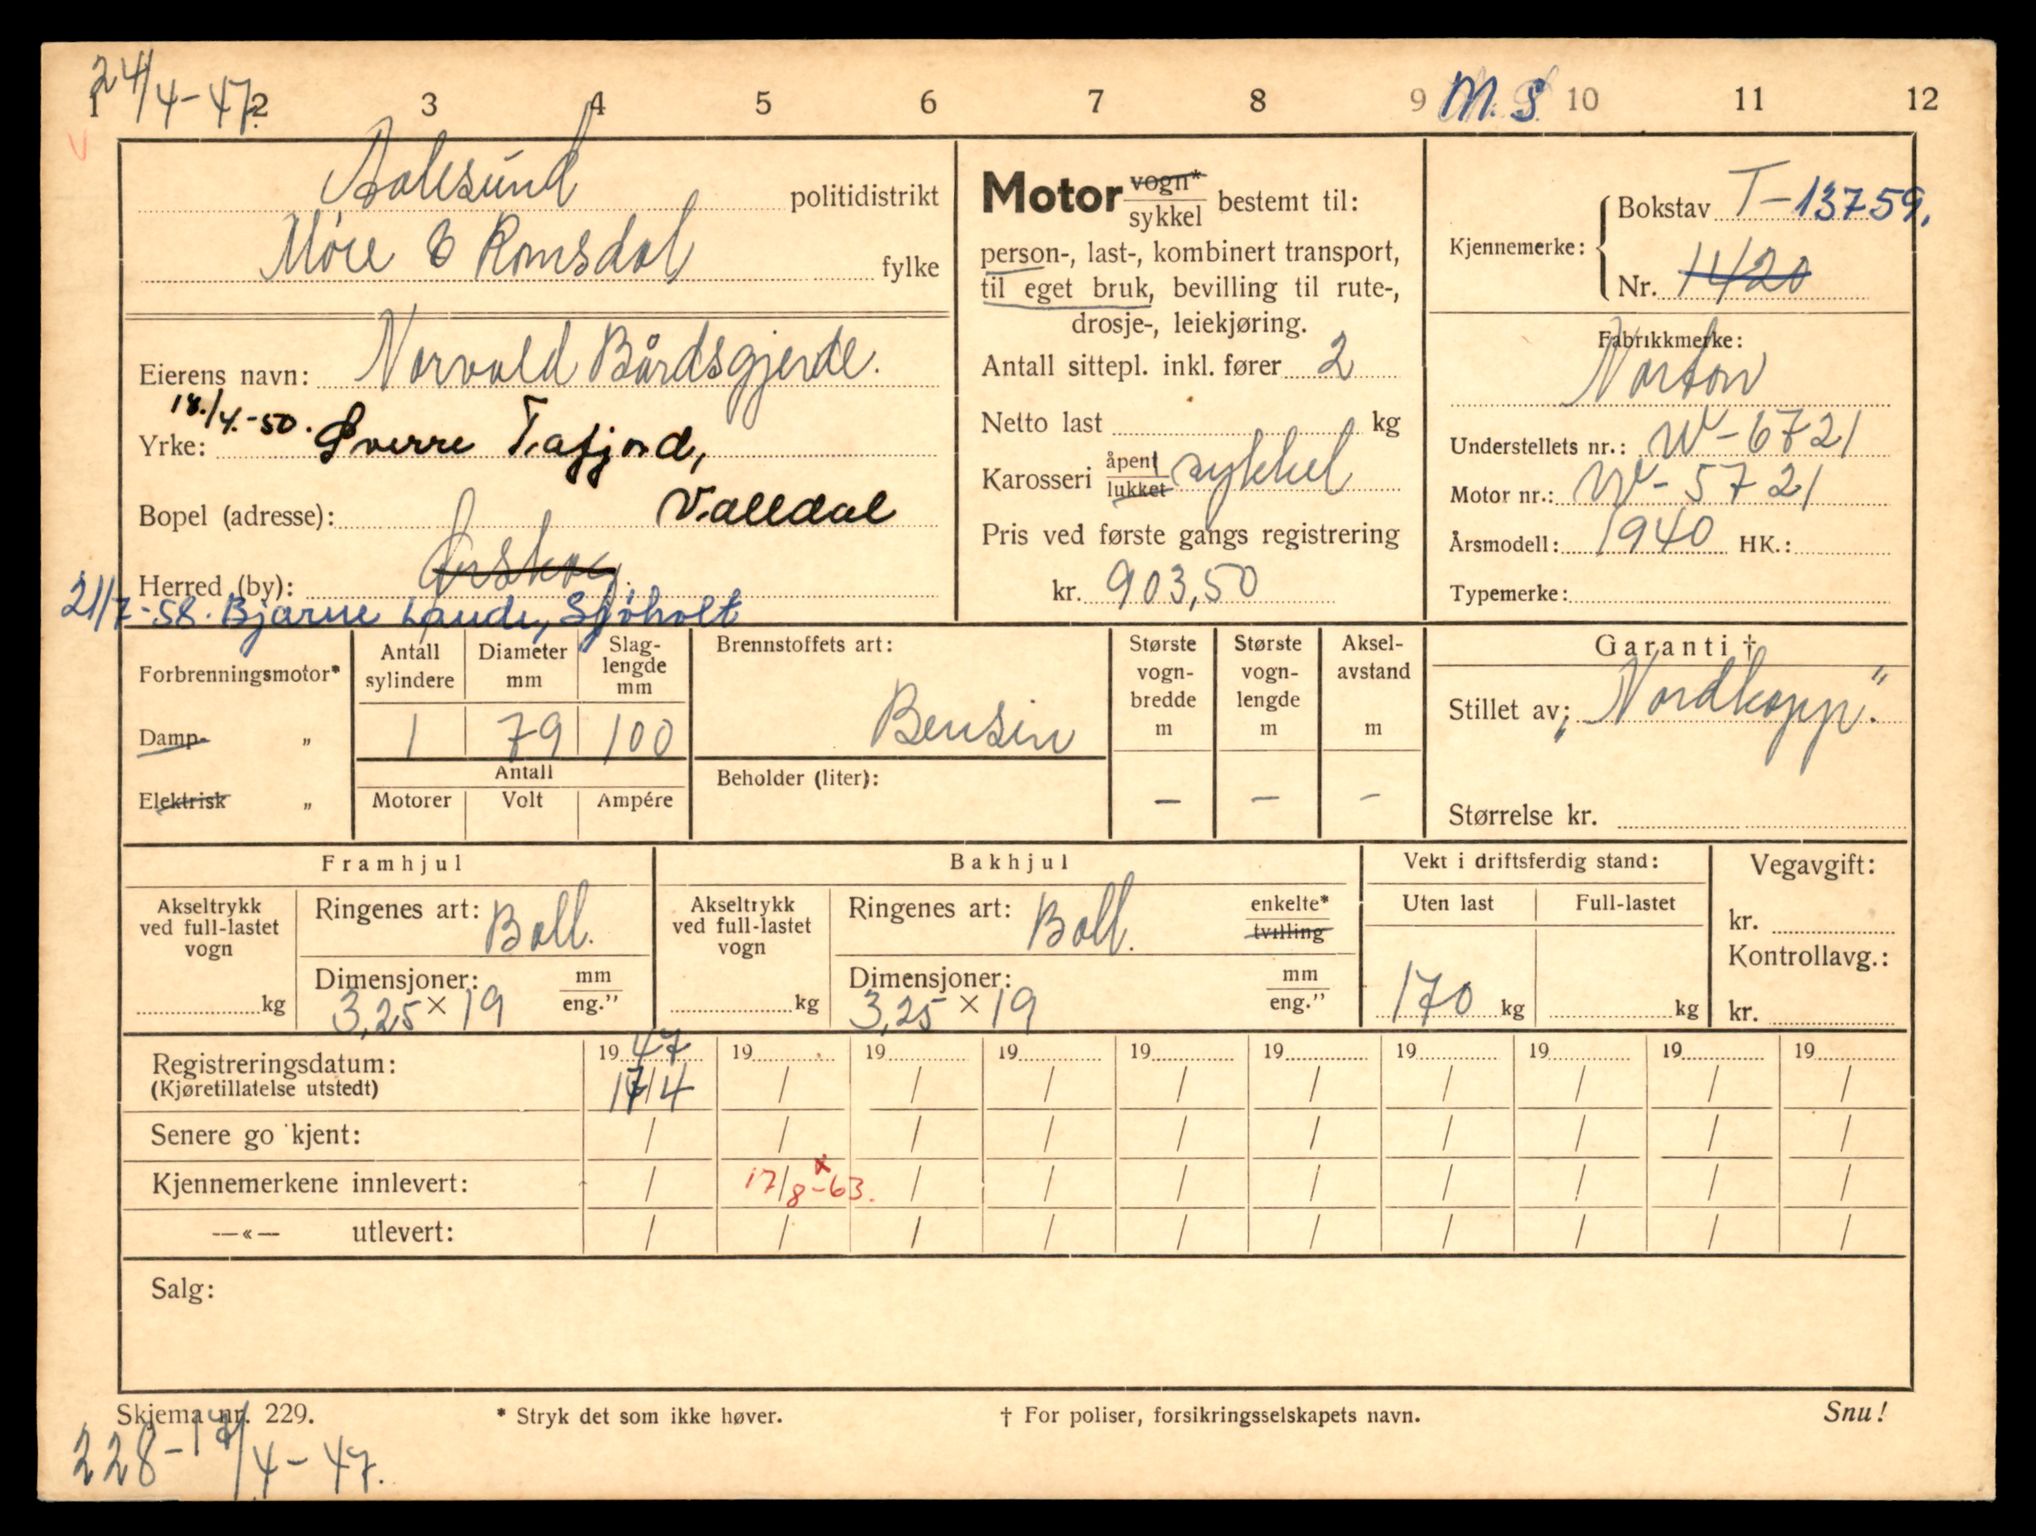 24/4-47.
1 2 3 4 5 6 7 8 9 M.S. 10 11 12
Aalesund politidistrikt
Møre & Romsdal fylke
Eierens navn: Norvald Bårdsgjerde.
18./4.-50.
Yrke: Sverre Tafjord,
Bopel (adresse): Valldal
Herred (by): Ørskog.
21/7-58. Bjarne Lande, Sjøholt
Motor vogn* / sykkel bestemt til:
person-, last-, kombinert transport,
til eget bruk, bevilling til rute-,
drosje-, leiekjøring.
Antall sittepl. inkl. fører 2
Netto last kg
Karosseri åpent / lukket sykkel
Pris ved første gangs registrering
kr. 903,50
Kjennemerke: Bokstav T-13759.
Nr. 1420
Fabrikkmerke:
Norton
Understellets nr.: W-6721
Motor nr.: W-5721
Årsmodell: 1940 HK.:
Typemerke:
Forbrenningsmotor*
Damp- „
Elektrisk „
Antall sylindere Diameter mm Slag-lengde mm
1 79 100
Antall
Motorer Volt Ampére
Brennstoffets art:
Bensin
Beholder (liter):
Største vogn-bredde m Største vogn-lengde m Aksel-avstand m
— — —
Garanti †
Stillet av: „Nordkapp".
Størrelse kr.
Framhjul
Akseltrykk ved full-lastet vogn
kg
Ringenes art: Ball.
Dimensjoner: mm / eng."
3,25 × 19
Bakhjul
Akseltrykk ved full-lastet vogn
kg
Ringenes art: Ball. enkelte* / tvilling
Dimensjoner: mm / eng."
3,25 × 19
Vekt i driftsferdig stand:
Uten last Full-lastet
170 kg kg
Vegavgift:
kr.
Kontrollavg.:
kr.
Registreringsdatum: 1947 19 19 19 19 19 19 19 19 19
(Kjøretillatelse utstedt) 17/4 / / / / / / / / /
Senere go kjent: / / / / / / / / / /
Kjennemerkene innlevert: / 17/8-63. / / / / / / / /
—«— utlevert: / / / / / / / / / /
Salg:
Skjema nr. 229. * Stryk det som ikke høver. † For poliser, forsikringsselskapets navn. Snu!
228- /4-47.